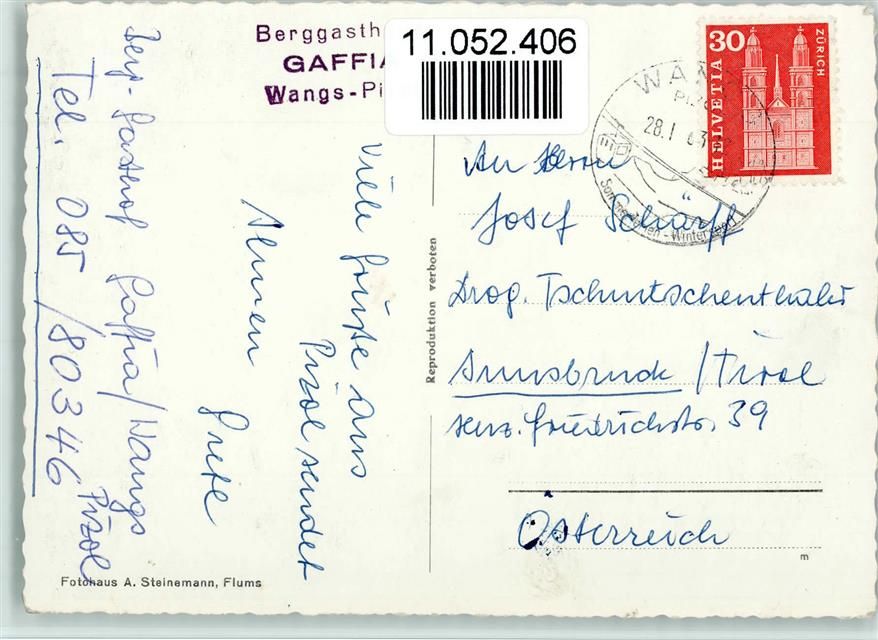 Berggasth
GAFFIA
Wangs-Pi
11.052.406
HELVETIA 30
ZÜRICH
WANGS
28.I 63
Sommerferien - Wintersport
Viele Grüße aus
Pizol sendet
Ihnen
Grete
Berg-Gasthof Gaffia/Wangs
Pizol
Tel. 085/80346
Fotohaus A. Steinemann, Flums
Reproduktion verboten
An Herrn
Josef Schärff
Drog. Tschurtschenthaler
Innsbruck/Tirol
Herz. Friedrichstr. 39
Österreich
m